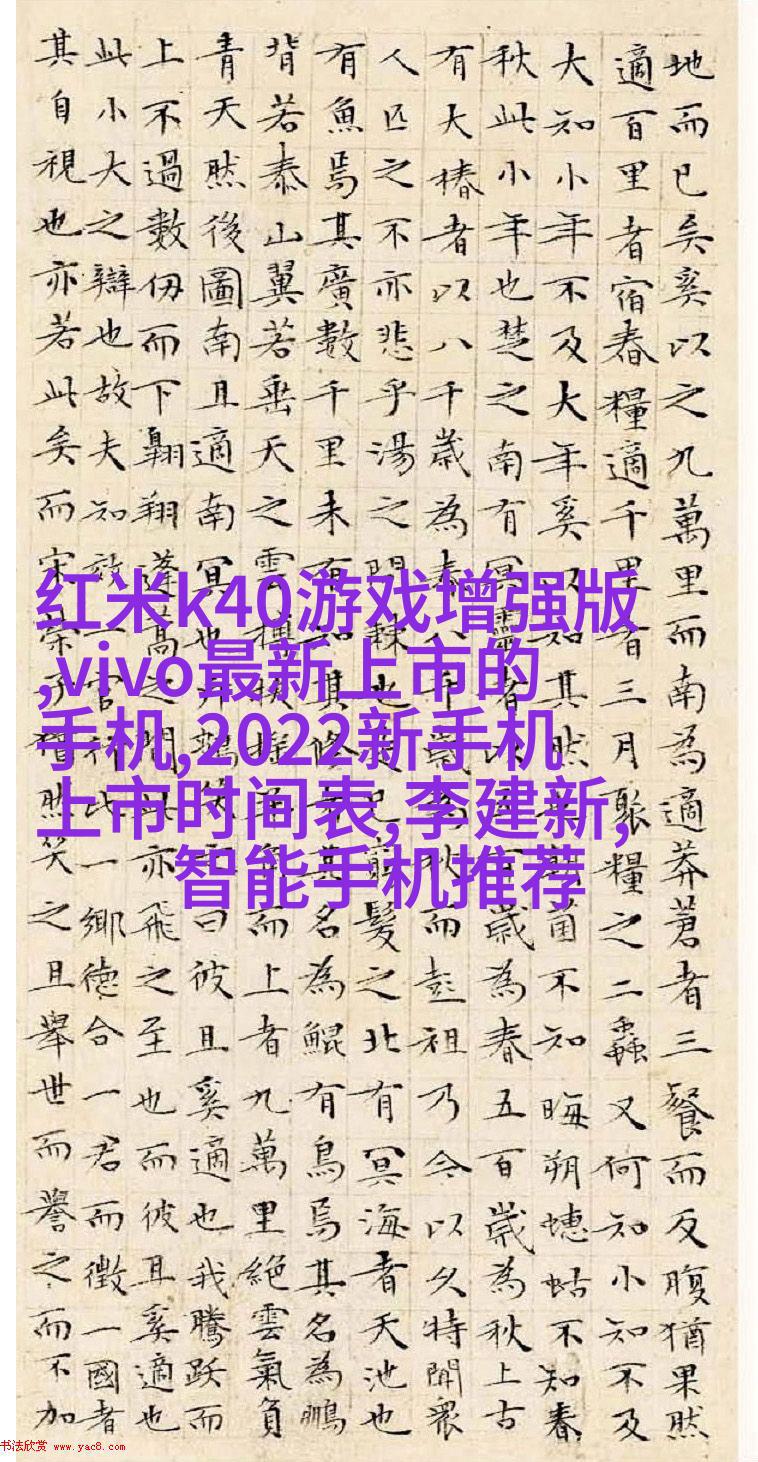 地而已矣奚以之九萬里而南為適莽蒼者三餐而反腹猶果然
適百里者宿舂糧適千里者三月聚糧之二蟲又何知小知不及
大知小年不及大年奚以知其然也朝菌不知晦朔蟪蛄不知春
秋此小年也楚之南有冥靈者以五百歲為春五百歲為秋上古
有大椿者以八千歲為春八千歲為秋而彭祖乃今以久特聞眾
人匹之不亦悲乎湯之問棘也是已窮髮之北有冥海者天池也
有魚焉其廣數千里未有知其修者其名為鯤有鳥焉其名為鵬
背若泰山翼若垂天之雲摶扶搖羊角而上者九萬里絕雲氣負
青天然後圖南且適南冥也斥鴳笑之曰彼且奚適也我騰躍而
上不過數仞而下翱翔蓬蒿之間此亦飛之至也而彼且奚適也
此小大之辯也故夫知效一官行比一鄉德合一君而徵一國者
其自視也亦若此矣而宋榮子猶然笑之且舉世而譽之而不加
红米k40游戏增强版
,vivo最新上市的
手机,2022新手机
上市时间表,李建新,
智能手机推荐
书法欣赏 www.yac8.com